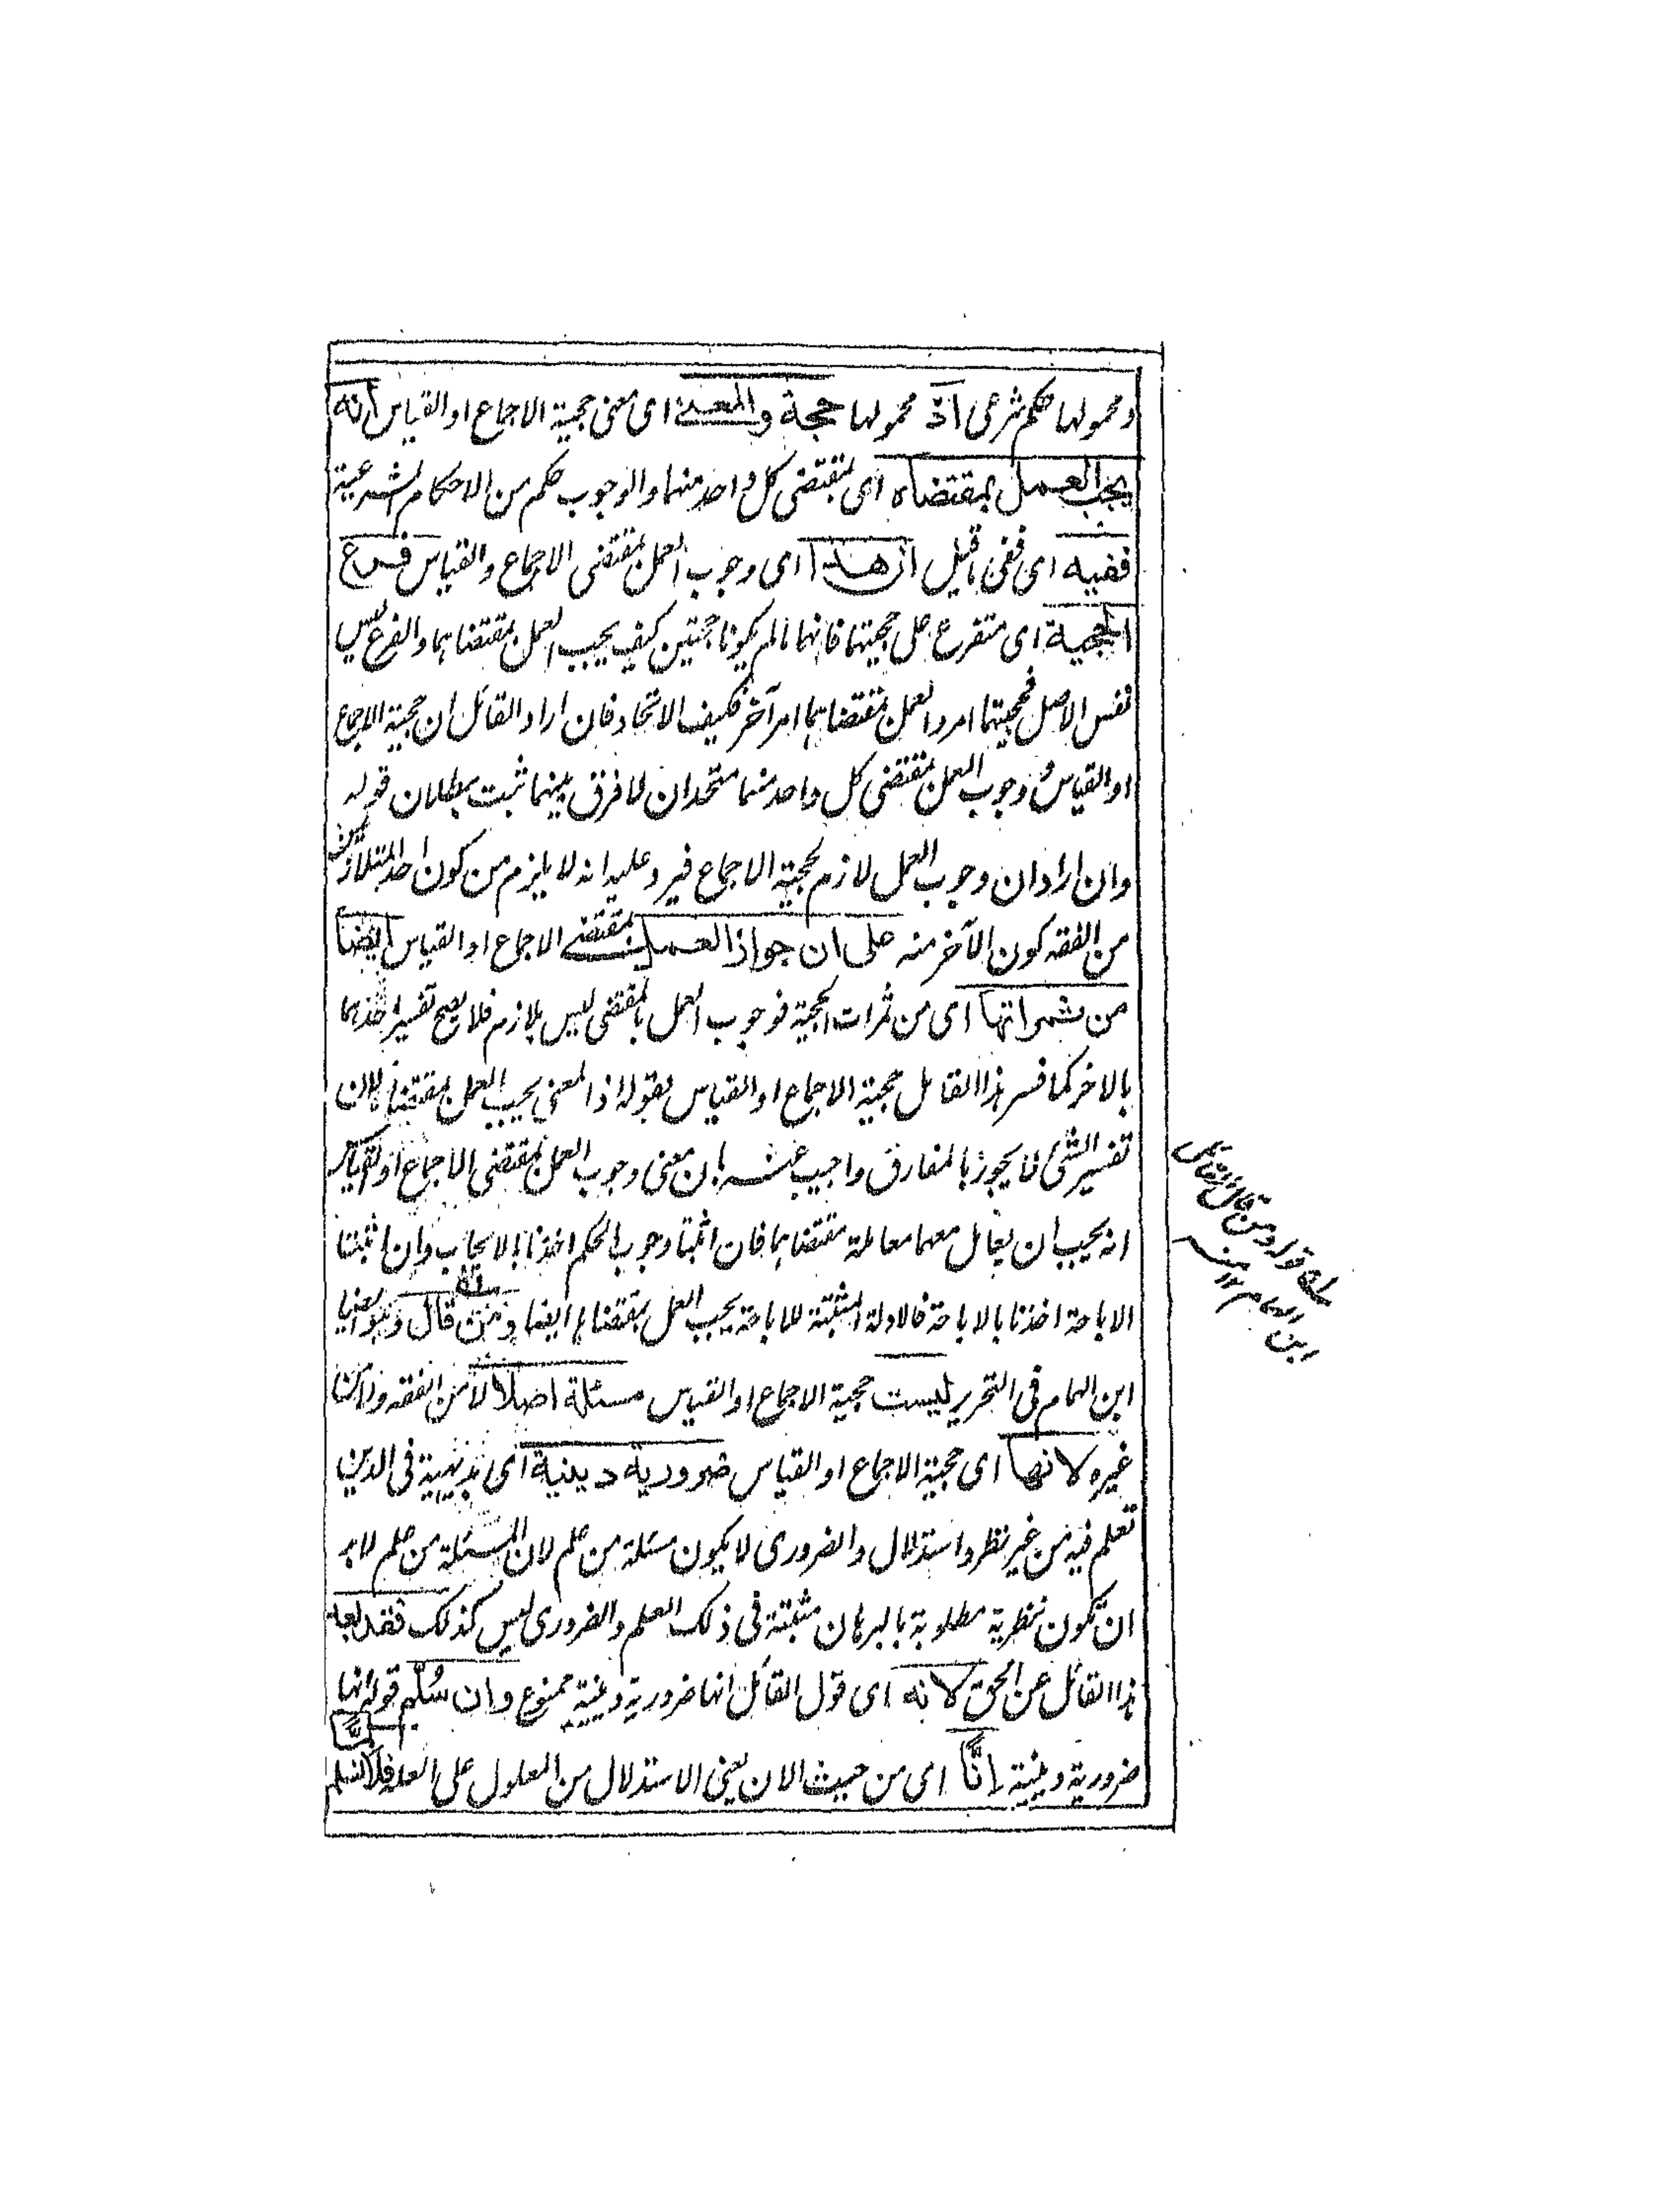 ومحمولها حكم شرعى اذ محمولها حجة والمعنى اى معنى حجية الاجماع او القياس انه
يجب العمل بمقتضاه اى بمقتضى كل واحد منهما والوجوب حكم من الاحكام الشرعية
ففيه اى ففى ما قيل ان هذا اى وجوب العمل بمقتضى الاجماع والقياس فرع
الحجية اى متفرع على حجيتهما فانهما ما لم يكونا حجتين كيف يجب العمل بمقتضاهما والفرع ليس
نفس الاصل فحجيتهما امر والعمل بمقتضاهما امر آخر فكيف الاتحاد فان اراد القائل ان حجية الاجماع
او القياس ووجوب العمل بمقتضى كل واحد منهما متحدان لا فرق بينهما ثبت بطلان قوله
وان اراد ان وجوب العمل لازم لحجية الاجماع فيرد عليه انه لا يلزم من كون احد المتلازمين
من الفقه كون الآخر منه على ان جواز العمل بمقتضى الاجماع او القياس ايضا
من ثمراتها اى من ثمرات الحجية فوجوب العمل بالمقتضى ليس بلازم فلا يصح تفسير احدهما
بالاخر كما فسر هذا القائل حجية الاجماع او القياس بقوله اذ المعنى يجب العمل بمقتضاه لان
تفسير الشئ لا يجوز بالمفارق واجيب عنه بان معنى وجوب العمل بمقتضى الاجماع او القياس
انه يجب ان يعامل معهما معاملة مقتضاهما فان اثبتا وجوب الحكم اخذنا بالايجاب وان اثبتا
الاباحة اخذنا بالاباحة فالادلة المثبتة للاباحة يجب العمل بمقتضاها ايضا ومن قال وهو
ابن الهمام فى التحرير ليست حجية الاجماع او القياس مسئلة اصلا لا من الفقه ولا من
غيره لانها اى حجية الاجماع او القياس ضرورية دينية اى بديهية فى الدين
تعلم فيه من غير نظر واستدلال والضرورى لا يكون مسئلة من علم لان المسئلة من علم لابد
ان تكون نظرية مطلوبة بالبرهان مثبتة فى ذلك العلم والضرورى ليس كذلك فقد بعد
هذا القائل عن الحق لانه اى قول القائل انها ضرورية دينية ممنوع وان سُلّم قوله انها
ضرورية دينية إنًّا اى من حيث الان يعنى الاستدلال من المعلول على العلة فلا نسلم
لمًّا
قوله ومن قال القائل
ابن الهمام ١٢ منه